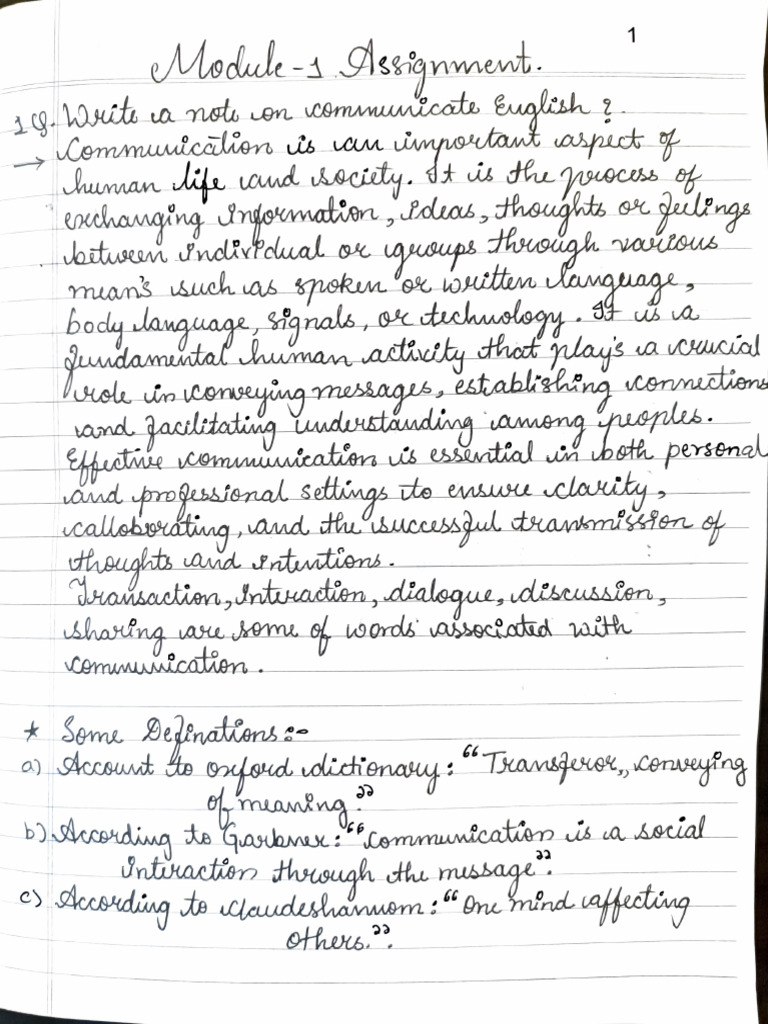 1
Module-1 Assignment.
1Q. Write a note on communicate English ?
→ Communication is an important aspect of
human life and society. It is the process of
exchanging information, ideas, thoughts or feelings
between individual or groups through various
mean's such as spoken or written language,
body language, signals, or technology. It is a
fundamental human activity that play's a crucial
role in conveying messages, establishing connections
and facilitating understanding among peoples.
Effective communication is essential in both personal
and professional settings to ensure clarity,
calloborating, and the successful transmission of
thoughts and intentions.
Transaction, Interaction, dialogue, discussion,
sharing are some of words associated with
communication.
* Some Definations:-
a) Account to oxford dictionary: "Transferor,, conveying
of meaning."
b) According to Garbner: "communication is a social
interaction through the message".
c) According to claudeshannom: "One mind affecting
others.".